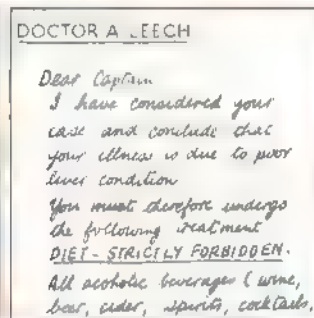 DOCTOR A LEECH
Dear Captain
I have considered your
case and conclude that
your illness is due to poor
liver condition
You must therefore undergo
the following treatment
DIET - STRICTLY FORBIDDEN.
All acoholic beverages (wine,
beer, cider, spirits, cocktails,